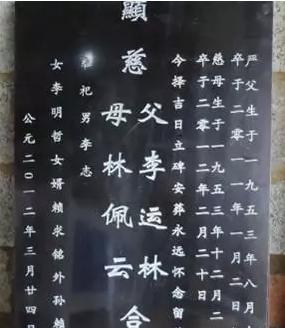 严父生于一九五三年八月
卒于二零一一年一月二日
慈母生于一九五三年十二月二
卒于二零一二年二月二十日
今择吉日立碑安葬永远怀念留
顯慈
父李运林
母林佩云
合
祀男李志
女李明哲女婿賴求銘外孙賴
公元二0一二年三月廿四日